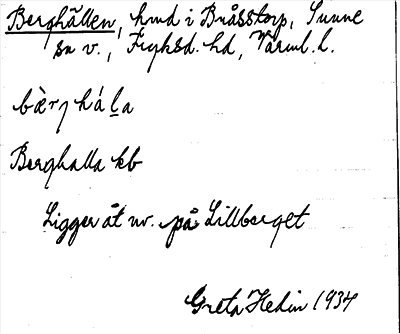 Berghällen, hmd i Bråsstorp, Sunne
sn v., Fryksd. hd, Värml. l.
bæ̀rjháḷa
Berghalla kb
Ligger åt nv. på Lillberget
Greta Hedin 1934